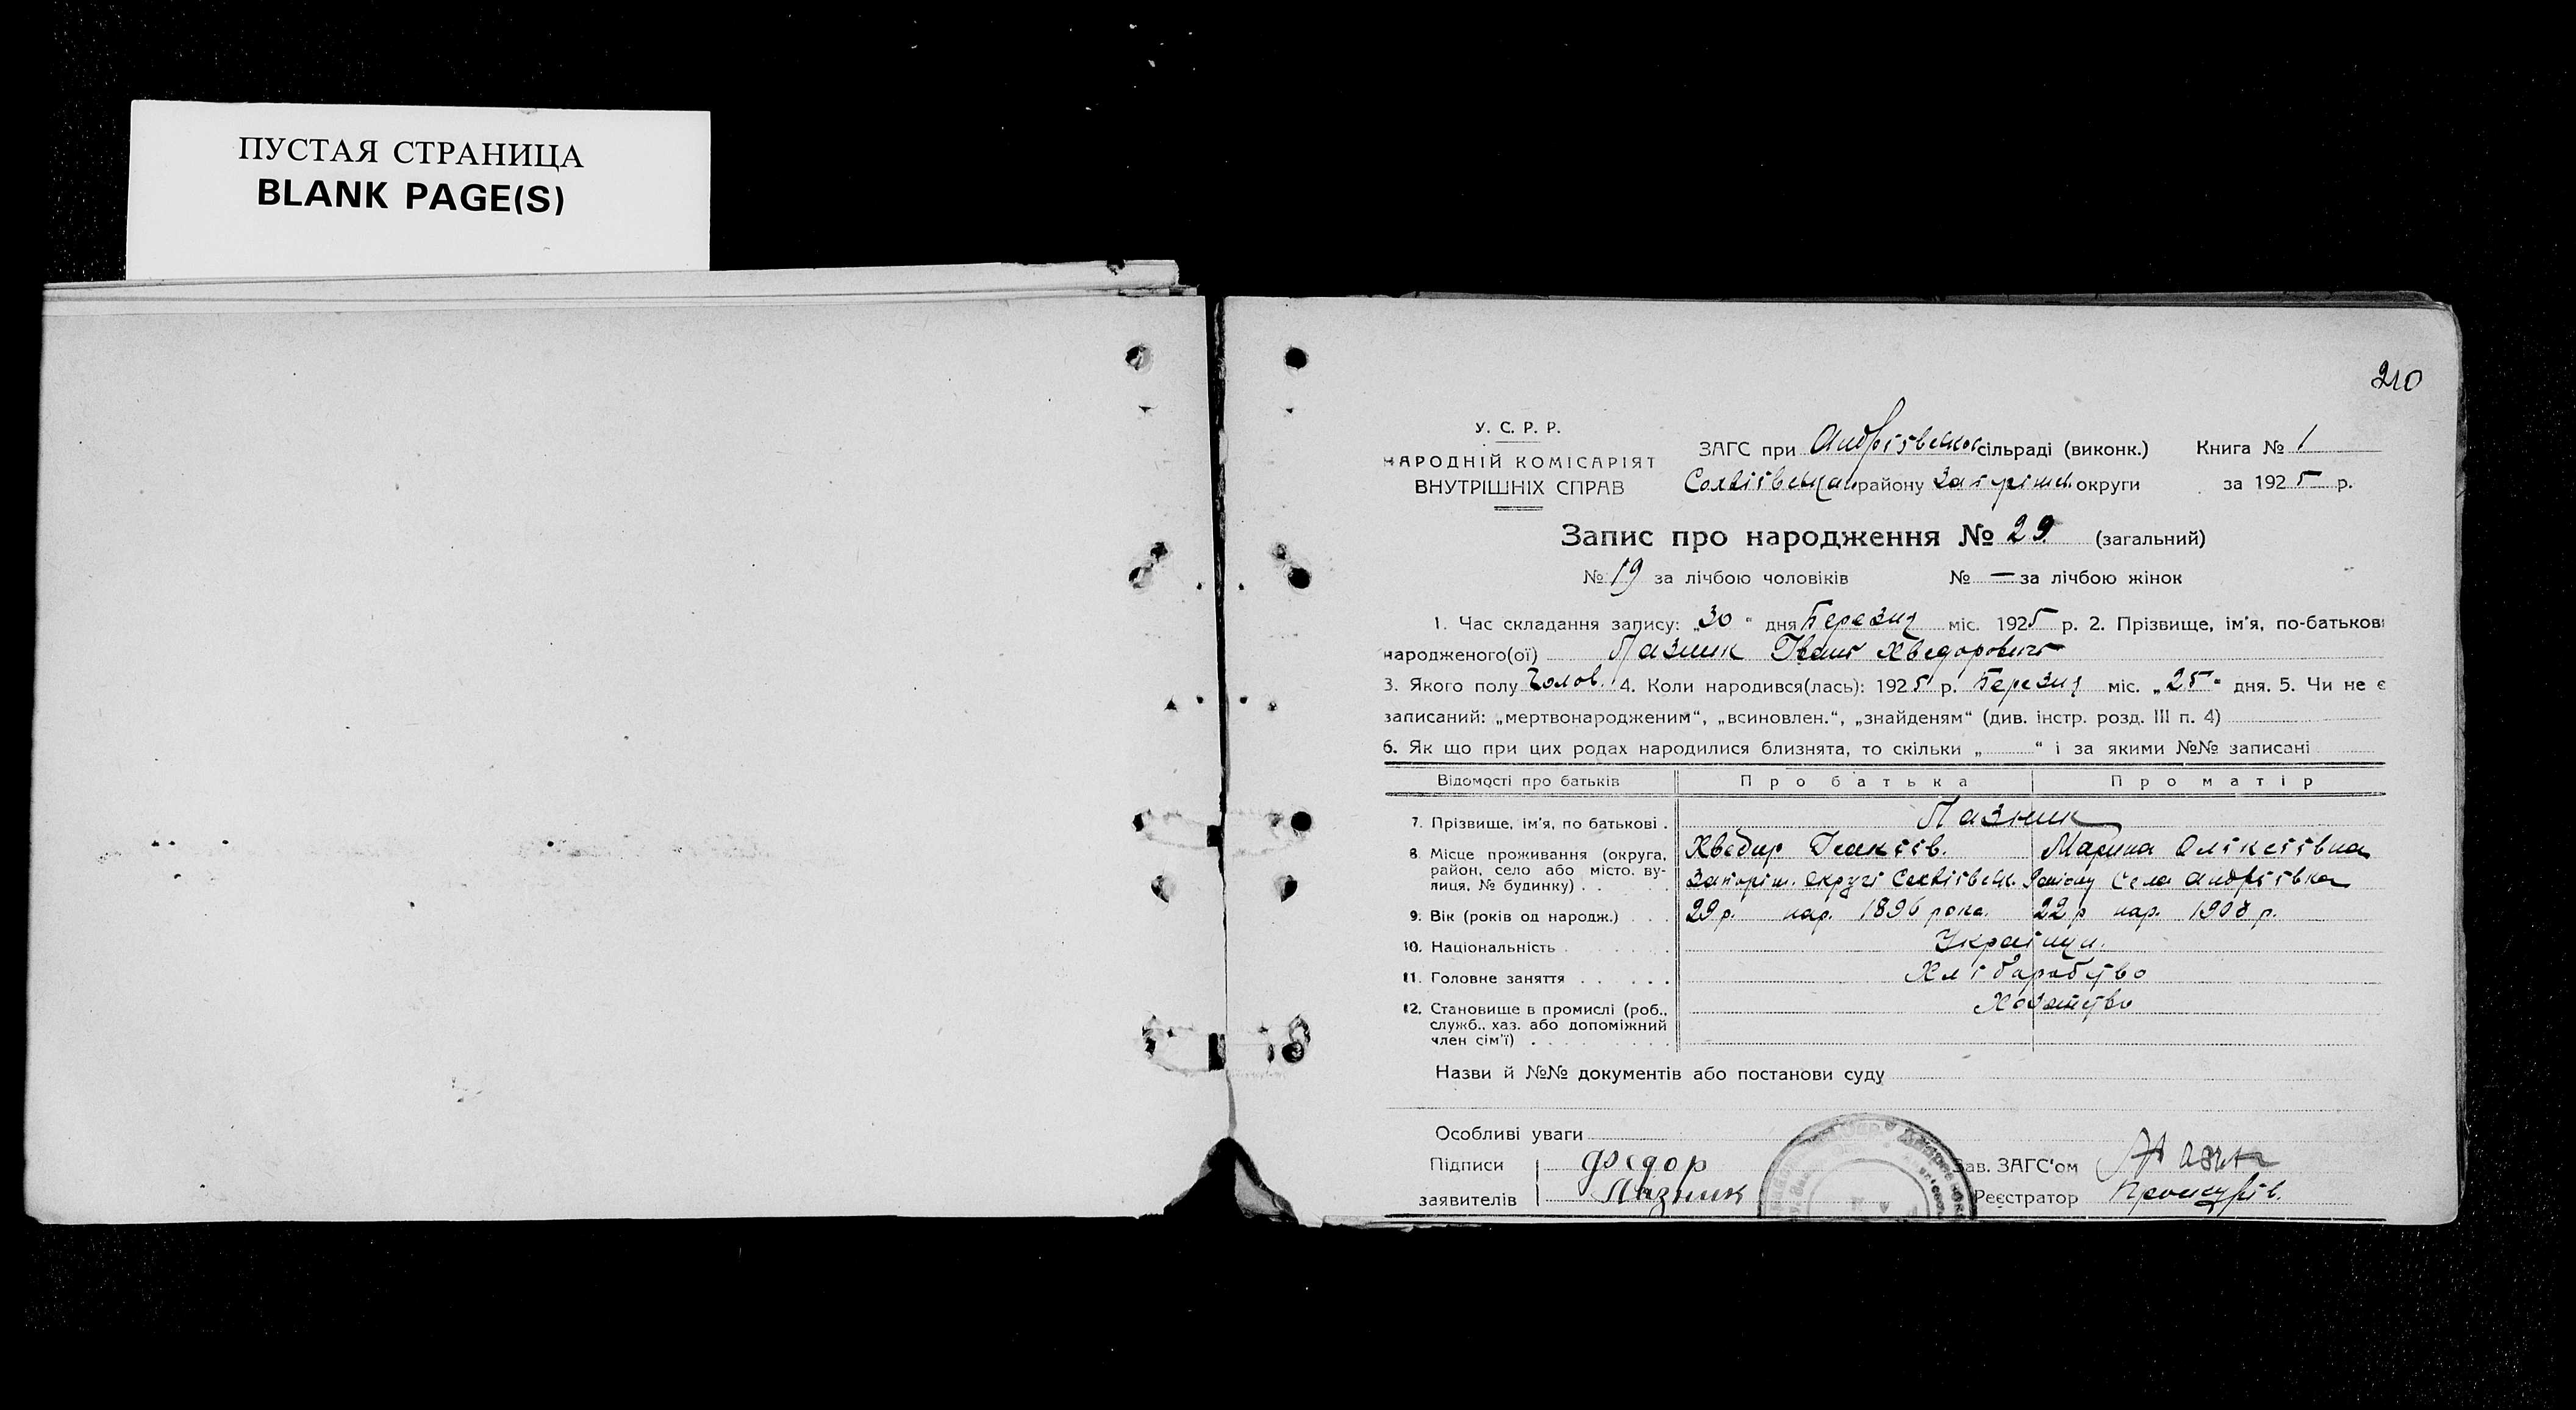 ПУСТАЯ СТРАНИЦА
BLANK PAGE(S)
210
У. С. Р. Р.
НАРОДНІЙ КОМІСАРІЯТ
ВНУТРІШНІХ СПРАВ
ЗАГС при Андріївської сільраді (виконк.) Книга № 1
району Запоріжж. округи за 1925 р.
Запис про народження № 29 (загальний)
№ 19 за лічбою чоловіків № — за лічбою жінок
1. Час складання запису: „30“ дня Березня міс. 1925 р. 2. Прізвище, ім'я, по-батькові
народженого(ої) Лазник Іван Хведорович
3. Якого полу Чолов. 4. Коли народився(лась): 1925 р. Березня міс. „25“ дня. 5. Чи не є
записаний: „мертвонародженим“, „всиновлен.“, „знайденям“ (див. інстр. розд. III п. 4)
6. Як що при цих родах народилися близнята, то скільки „ “ і за якими №№ записані
Відомості про батьків Про батька Про матір
7. Прізвище, ім'я, по батькові . Лазник
Хведир Марина Оліксіівна
8. Місце проживання (округа,
район, село або місто, вулиця, № будинку) . . округі Району Села Андріівка
9. Вік (років од народж.) . . . 29 р. нар. 1896 рока. 22 р нар. 1903 р.
10. Національність Українци.
11. Головне заняття . . . . . . Хліборобство
12. Становище в промислі (роб.,
служб., хаз. або допоміжний
член сім'ї) .
Назви й №№ документів або постанови суду
Особливі уваги
Підписи Федор Зав. ЗАГС'ом
заявителів Лазник Реєстратор